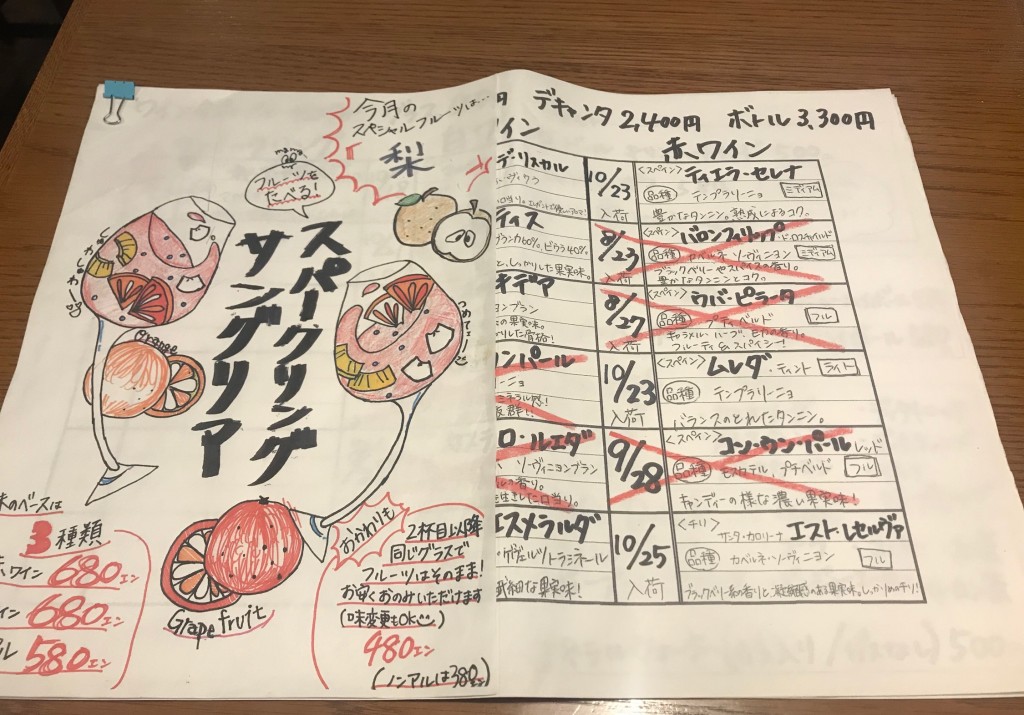 今月の
スペシャルフルーツは…
梨
フルーツを
たべる!
スパークリング
サングリア
Orange
Grapefruit
3種類
ワイン 680エン
イン 680エン
ル 580エン
おかわりも
2杯目以降
同じグラスで
フルーツはそのまま!
お安くおのみいただけます
(味変更もOK
480エン
(ノンアルは380エン)
円 デキャンタ 2,400円 ボトル 3,300円
イン
赤ワイン
デ・リスカル
10/23
入荷
<スペイン> ティエラ・セレナ
品種 テンプラリーニョ ミディアム
豊かなタンニン。熟成によるコク。
ティス
60%。ビウラ40%
しっかりした果実味。
8/23
入荷
<スペイン> バロンフィリップ・ド・ロスチャイルド
品種 カベルネ・ソーヴィニヨン ミディアム
ブラックベリーやスパイスの香り。
豊かなタンニンとコク。
ンブラン
の果実味。
8/27
入荷
<スペイン> ウバ・ピラータ
品種 プティベルド フル
キャラメル、ハーブ、
フルーティ&スパイシー!
ンパール
ーニョ
ミネラル感!
抜群!!
10/23
入荷
<スペイン> ムレダ・ティント ライト
品種 テンプラリーニョ
バランスのとれたタンニン。
ロ・ルエダ
ソーヴィニヨンブラン
の香り。
生き生きした口当り。
9/28
<スペイン> コン・ウン・パール レッド
品種 モスカテル、プチベルド フル
キャンディーの様な濃い果実味!
エスメラルダ
ゲヴェルツトラミネール
細な果実味!
10/25
入荷
<チリ> サンタ・カロリーナ エスト・レセルヴァ
品種 カベルネ・ソーヴィニヨン フル